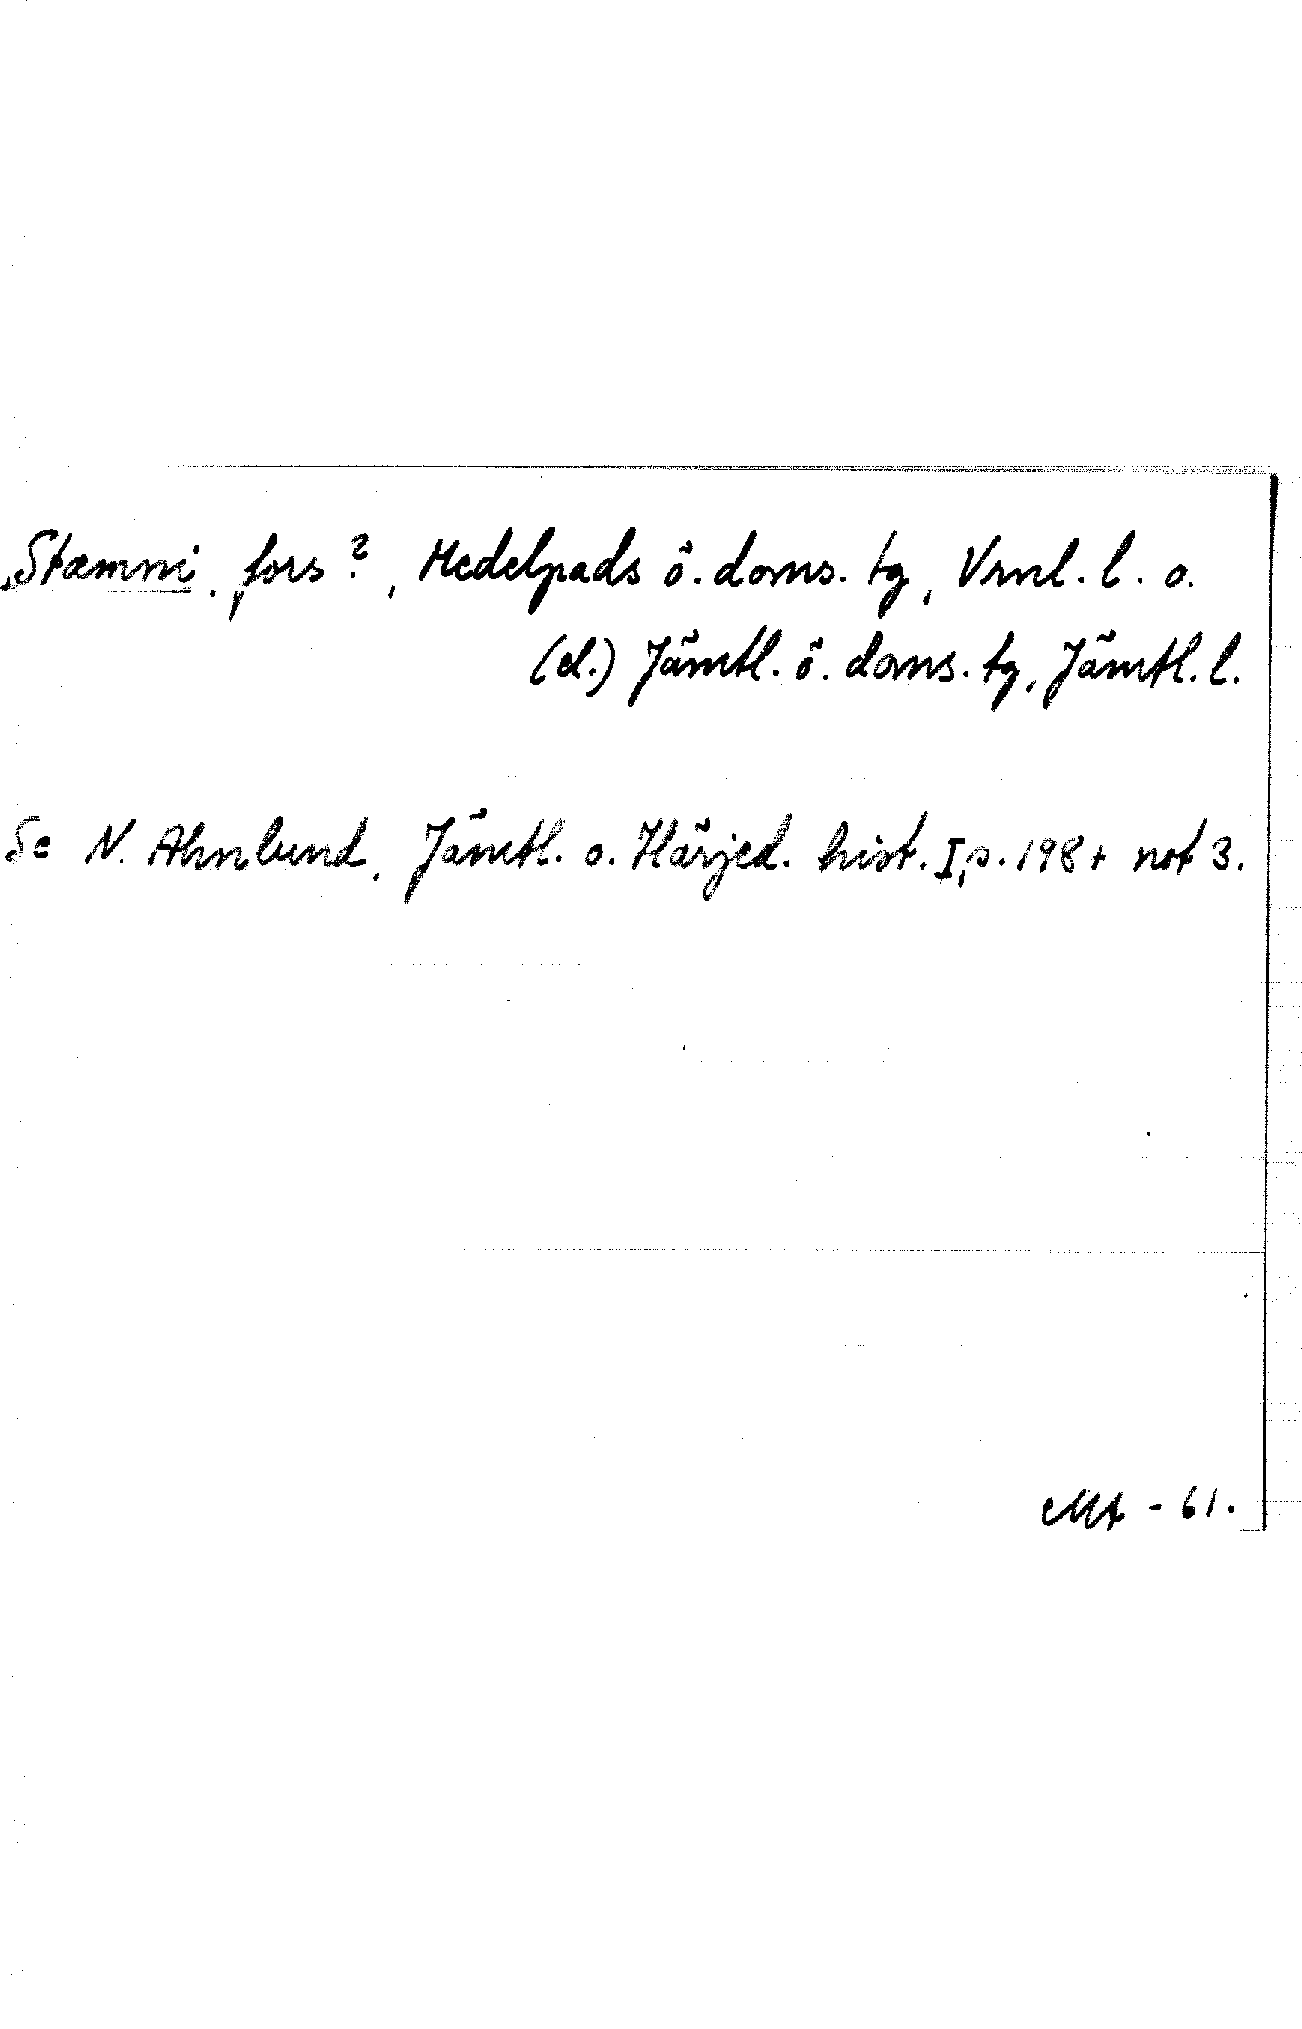 Stæmni, fors?, Medelpads ö. doms. tg, Vrnl. l. o.
(el.) Jämtl. ö. doms. tg, Jämtl. l.
Se N. Ahnlund, Jämtl. o. Härjed. hist. I, s. 198 + not 3.
- 61.